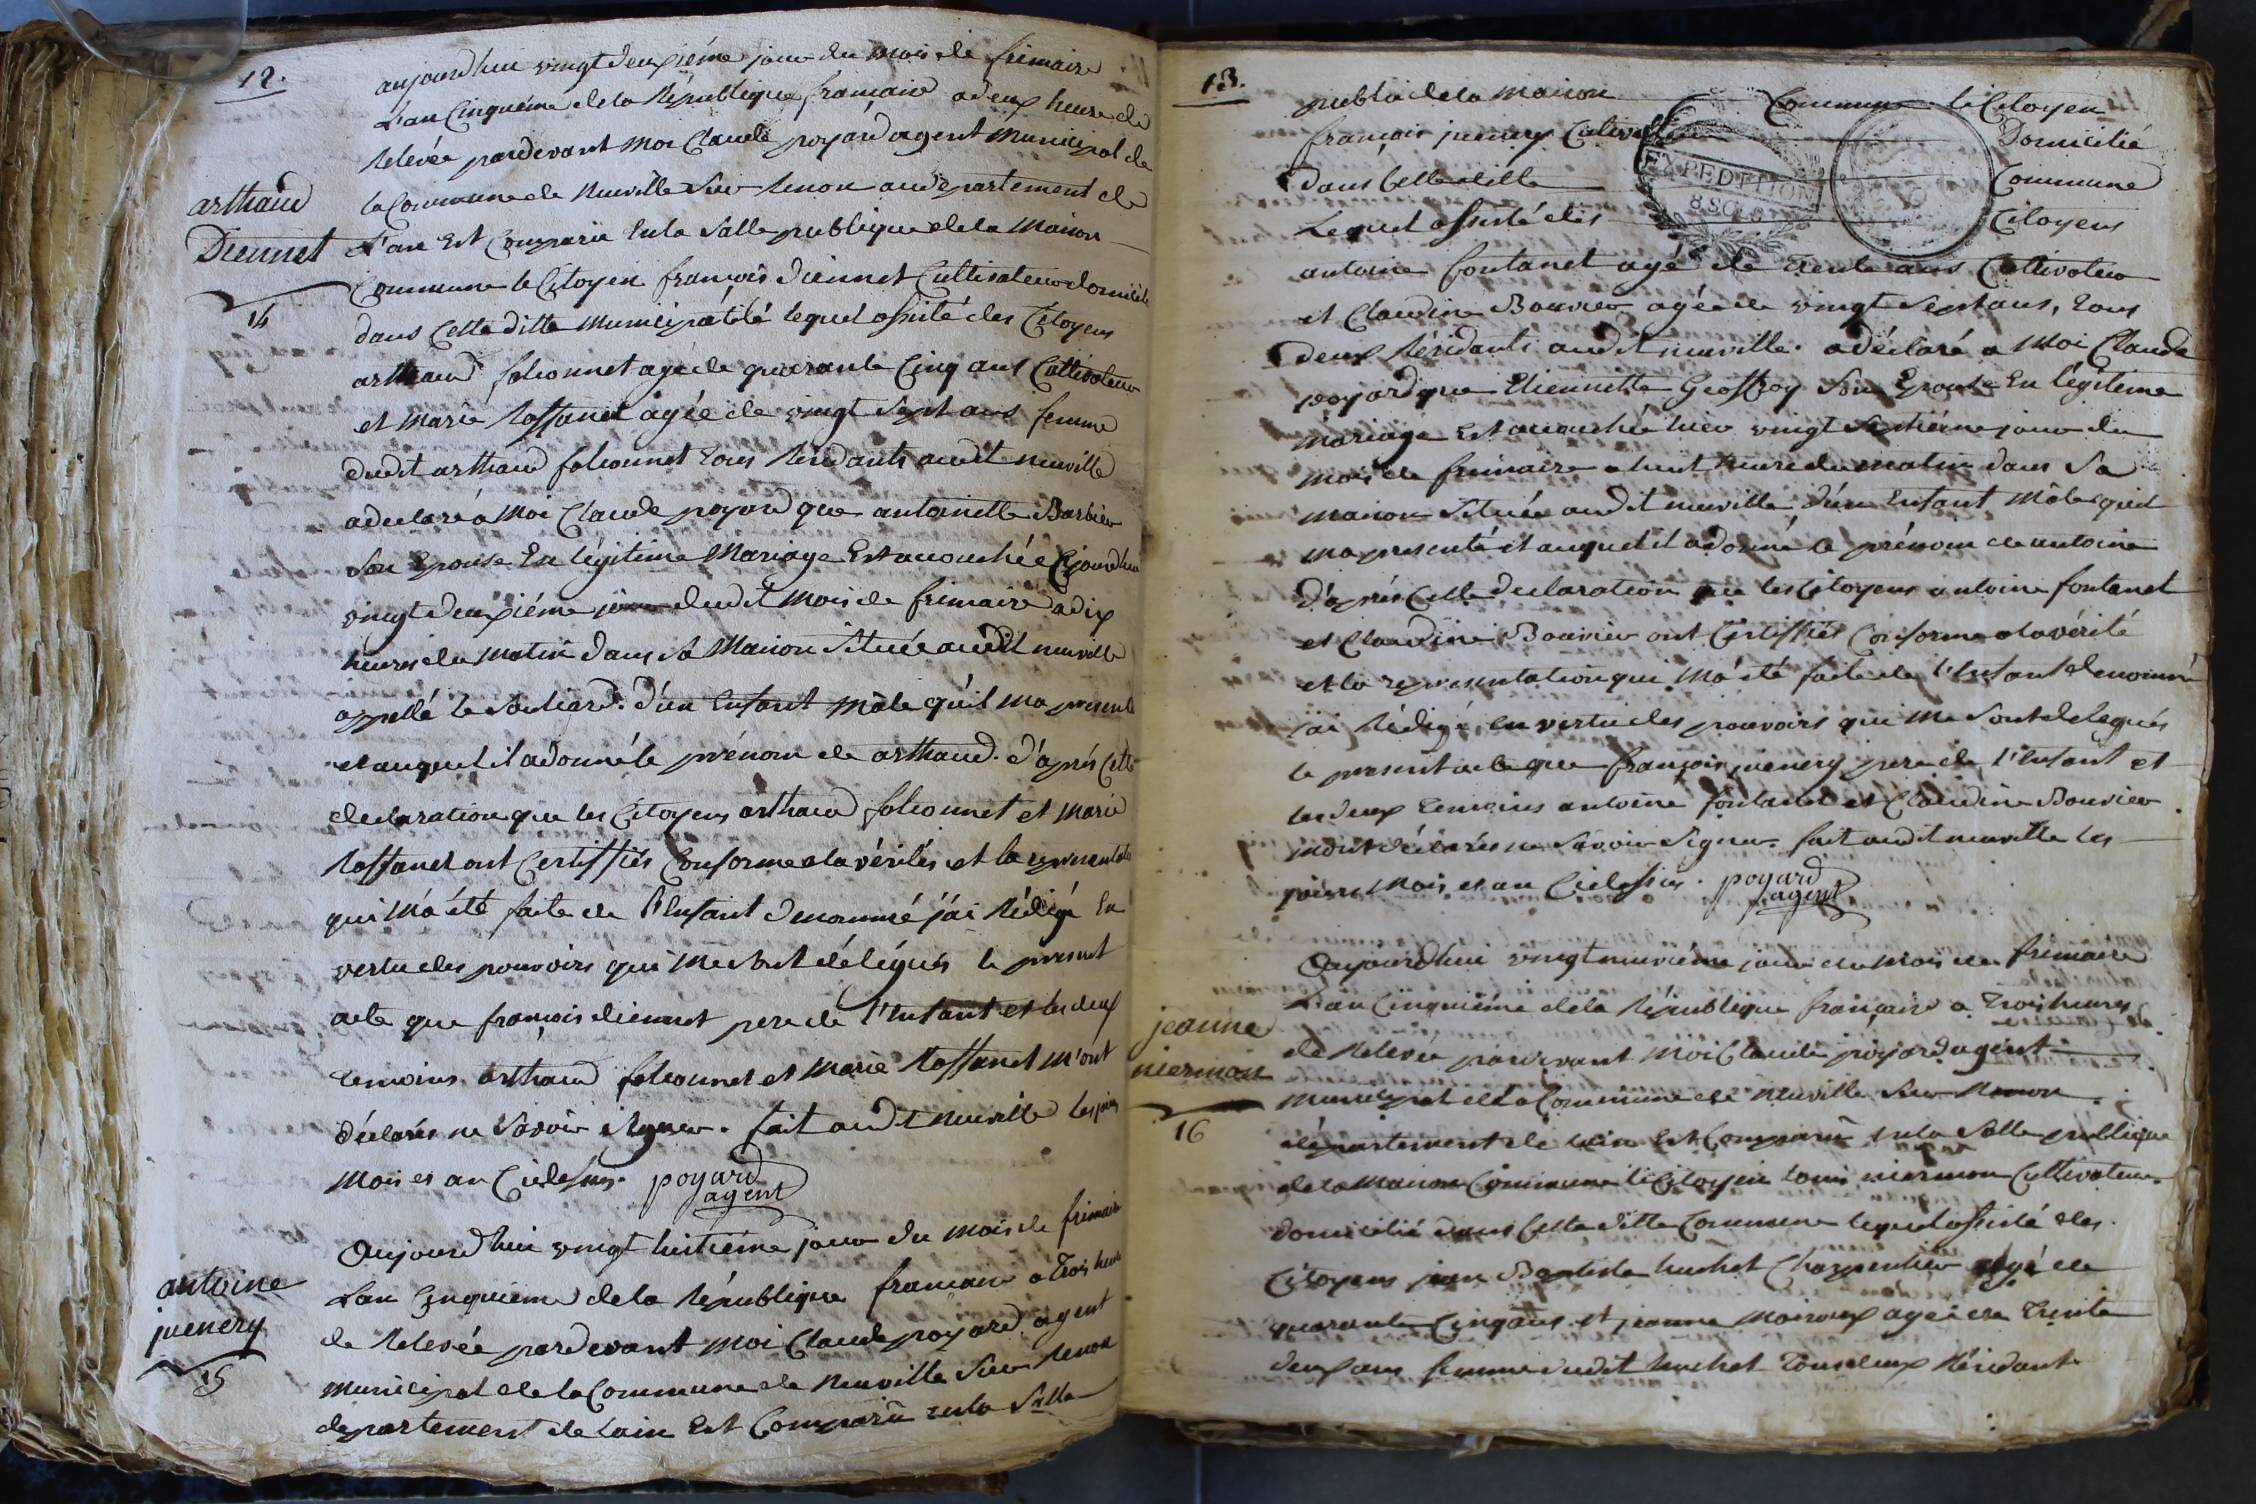 12.
aujourdhui vingt deuxiéme jour du mois de frimaire
L'an Cinquiéme de la République francaise a deux heure de
Relevée pardevant Moi Claude poyard agent Municipal de
la Commune de Neuville Sur Renon au departement de
L'ain Est Comparu En la Salle publique de la Maison
Commune le Citoyen françois diennet Cultivateur domicilié
dans Cette ditte Municipalité lequel assité des Citoyens
arthaud folionnet agé de quarante Cinq ans Cultivateur
et Marie Rossanet agée de vingt Sept ans femme
dudit arthaud folionnet tous Residants audit neuville
a declaré a Moi Claude poyard que antoinette Barbier
Son Epouse En légitime Mariage Est accouchée Cejourdhui
vingt deuxiéme jour dudit Mois de frimaire a dix
heures du Matin dans Sa Maison Située audit neuville
appellé le Souliard. d'un Enfant Mâle qu'il ma presenté
et auquel il a donné le prénom de arthaud. d'aprés Cette
declaration que les Citoyens arthaud folionnet et Marie
Rossanet ont Certiffiés Conforme a la vérités et la representation
qui M'a été faite de l'Enfant denommé j'ai Rédigé En
vertu des pouvoirs qui Me Sont délégués le present
acte que françois diennet pere de l'Enfant et les deux
temoins arthaud folionnet et Marie Rossanet M'ont
déclarés ne Savoir Signer. fait audit Neuville les jour
Mois et an Ci dessus. poyard
agent
Aujourd'hui vingt huitiéme jour du Mois de frimaire
L'an Cinquiéme de la République francaise a trois heures
de Relevée pardevant Moi Claude poyard agent
Municipal de la Commune de Neuville Sur Renon
departement de Lain Est Comparu En la Salle
arthaud
Diennet
14
antoine
juenery
15
13.
public de la Maison Commune le Citoyen
françois juenery Cultivateur Domicilié
dans Cette ditte Commune
Lequel assité des Citoyens
EXPEDITION
8 SOLS
antoine fontanet agé de trente ans Cultivateur
et Claudine Bouvier agée de vingt Sept ans, tous
deux Résidants audit neuville. a déclaré a Moi Claude
poyard que Etiennette Geoffroy Son Epouse En légitime
Mariage Est accouchée hier vingt Septiéme jour du
Mois de frimaire a huit heure du matin dans Sa
Maison Située audit neuville d'un Enfant Mâle quil
ma presenté et auquel il a donné le prénom de antoine
d'aprés Cette declaration que les Citoyens antoine fontanet
et Claudine Bouvier ont Certiffiés Conforme a la vérité
et la representation qui M'a été faite de l'Enfant denommé
j'ai Rédigé en vertu des pouvoirs qui Me Sont delegués
le present acte que françois juenery pere de l'Enfant et
les deux temoins antoine fontanet et Claudine Bouvier
mont déclarés ne Savoir Signer. fait audit neuville les
jour Mois et an Ci dessus. poyard
agent
Aujourdhui vingt neuviéme jour du Mois de frimaire
L'an Cinquiéme de la République française a Trois heures
de Relevée pardevant Moi Claude poyard agent
Municipal de la Commune de Neuville Sur Renon
département de Lain Est Comparû En la Salle publique
de la Maison Commune le Citoyen Louis niermon Cultivateur
domicilié dans Cette ditte Commune lequel assité des
Citoyens jean Baptiste huchet Charpentier agé de
quarante Cinq ans et jeanne agée de Trente
deux ans femme dudit huchet Tous deux Résidant
jeanne
niermon
16